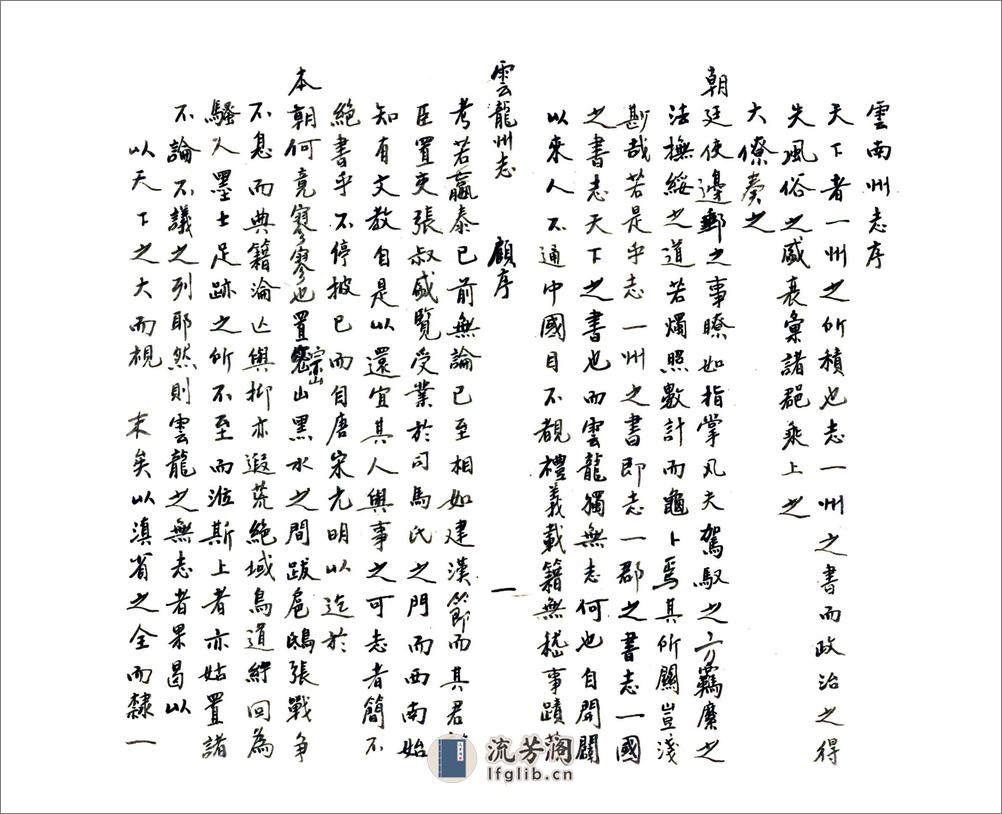 雲南州志序
天下者一州之所積也志一州之書而政治之得
失風俗之盛衰彙諸郡乘上之
大僚奏之
朝廷使邊郵之事瞭如指掌凡夫駕馭之方羈縻之
法撫綏之道若燭照數計而龜卜焉其所關豈淺
尠哉若是乎志一州之書即志一郡之書志一國
之書志天下之書也而雲龍獨無志何也自開闢
以來人不通中國目不覩禮義載籍無嵇事蹟
雲龍州志 顧序 一
考若嬴泰已前無論已至相如建漢節而其君
臣置吏張叔盛覽受業於司馬氏之門而西南始
知有文教自是以還宜其人與事之可志者簡不
絕書乎不停披已而自唐宋元明以迄於
本朝何竟寥寥也置宗山黑水之間跋扈鴟張戰争
不息而典籍淪亡與抑亦遐荒絕域鳥道紆回為
騷人墨士足跡之所不至而涖斯土者亦姑置諸
不論不議之列耶然則雲龍之無志者果曷以
以天下之大而視 末矣以滇省之全而隸一
流芳阁
lfglib.cn